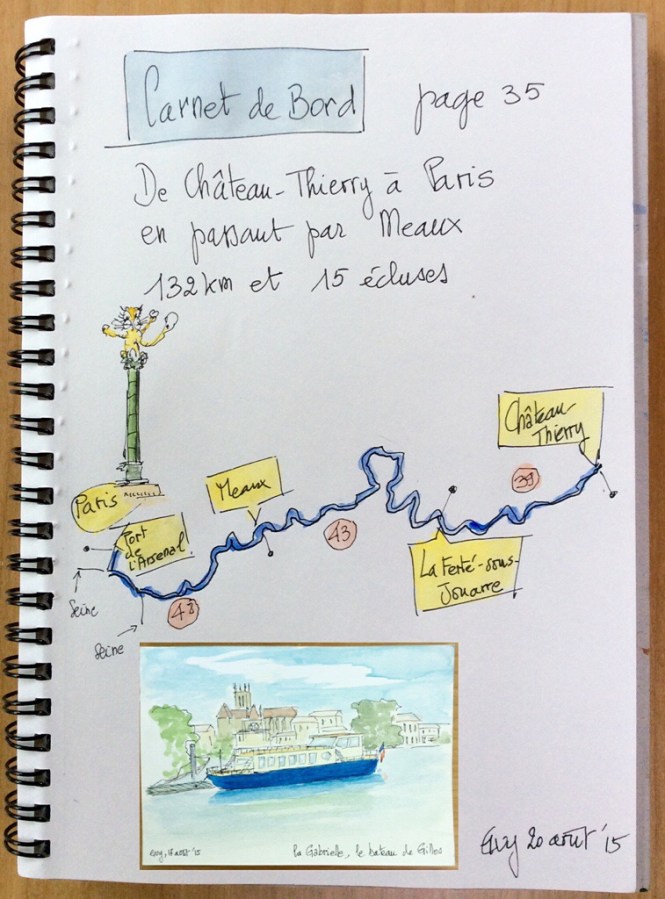 Carnet de Bord page 35
De Château-Thierry à Paris
en passant par Meaux
132 km et 15 écluses
Château-
Thierry
39
Meaux
Paris
43
Port
de
l'Arsenal
La Ferté-sous-
Jouarre
48
Seine
Seine
août '15
la Gabrielle, le bateau de Gilles
20 août '15